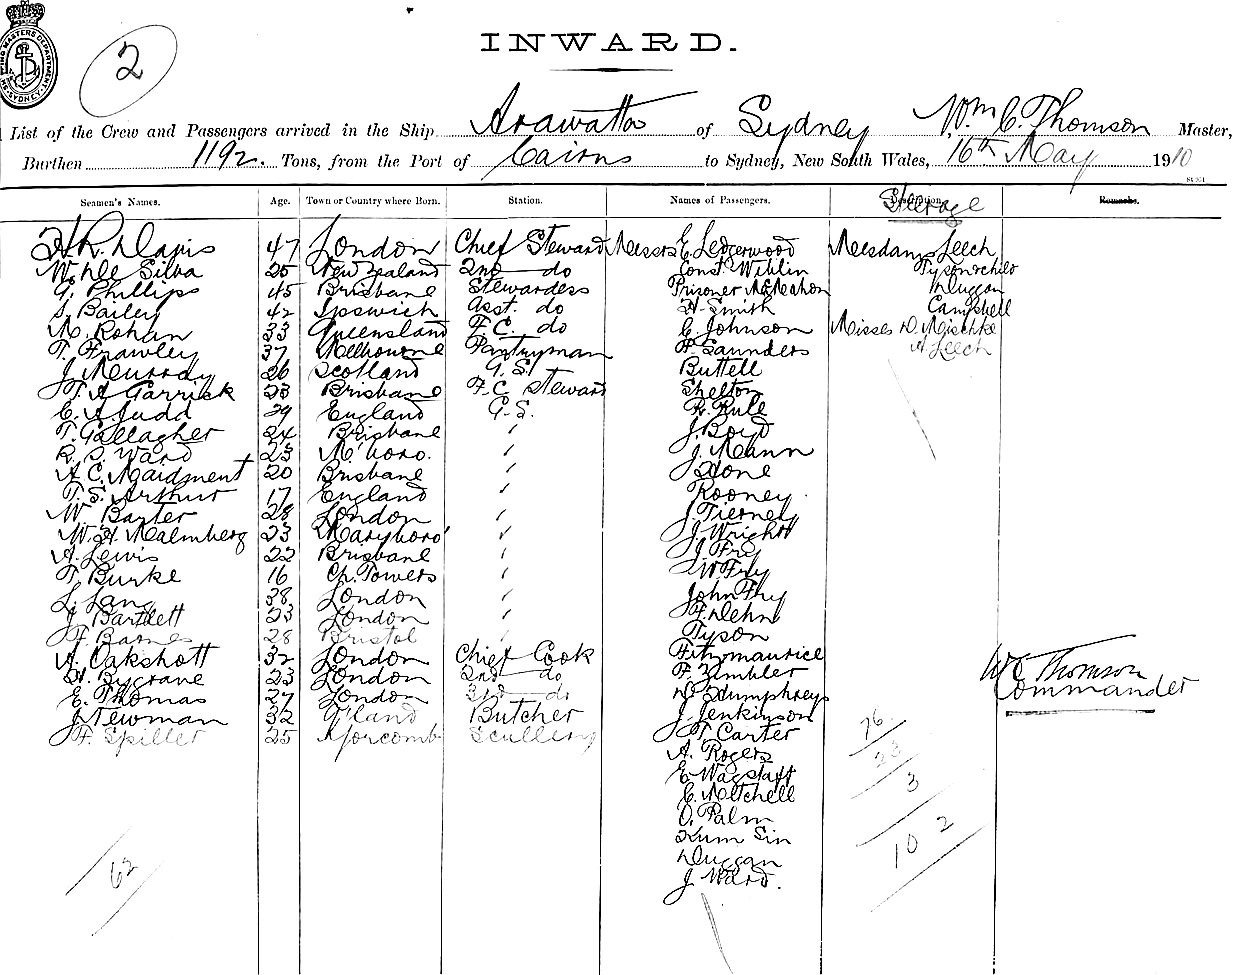 2
INWARD.
List of the Crew and Passengers arrived in the Ship Arawatta of Sydney Wm C. Thomson Master,
Burthen 1192. Tons, from the Port of Cairns to Sydney, New South Wales, 16th May 1910
Seamen's Names. Age. Town or Country where Born. Station. Names of Passengers. Steerage Remarks.
H R. Davis 47 London Chief Steward Messrs E. Ledgerwood Mesdames Leech
W. de Silva 25 New Zealand 2nd do Const. Weblin Tyson & child
G. Phillips 45 Brisbane Stewardess Prisoner McMahon Duggan
S. Bailey 42 Ipswich Asst. do H. Smith Campbell
M. Rohan 33 Queensland F.C. do C. Johnson Misses D. Mischke
T. Frawley 37 Melbourne Pantryman F. Saunders A. Leech
J. Murray 26 Scotland G.S. Buttell
T. A Garrick 23 Brisbane F.C. Steward Shelton
C. A. Judd 29 England G.S. R. Rule
T. Gallagher 24 Brisbane " J. Boyd
R. S. Ward 23 M'boro. " J. Mann
A. C. Maidment 20 Brisbane " Stone
T. S. Arthur 17 England " Rooney
W. Baxter 28 London " J. Tierney
W. H. Malmberg 23 Maryboro' " J. Wright
A. Lewis 22 Brisbane " J Fry
T. Burke 16 Ch. Towers " W Fry
L. Lang 38 London " John Fry
J. Bartlett 23 London " F. Dehn
F. Barnes 28 Bristol " Tyson
A. Oakshott 32 London Chief Cook Fitzmaurice
H. Bygrave 23 London 2nd do F. Zimbler
E. Thomas 27 London 3rd do D. Humphreys
J. Newman 32 G'land Butcher J. Jenkinson
F. Spiller 25 Scullery T. Carter
A. Rogers
E. Wagstaff
C. Mitchell
O. Palm
Kum Sin
Duggan
J. Ward.
W C Thomson
Commander
76
23
3
102
62